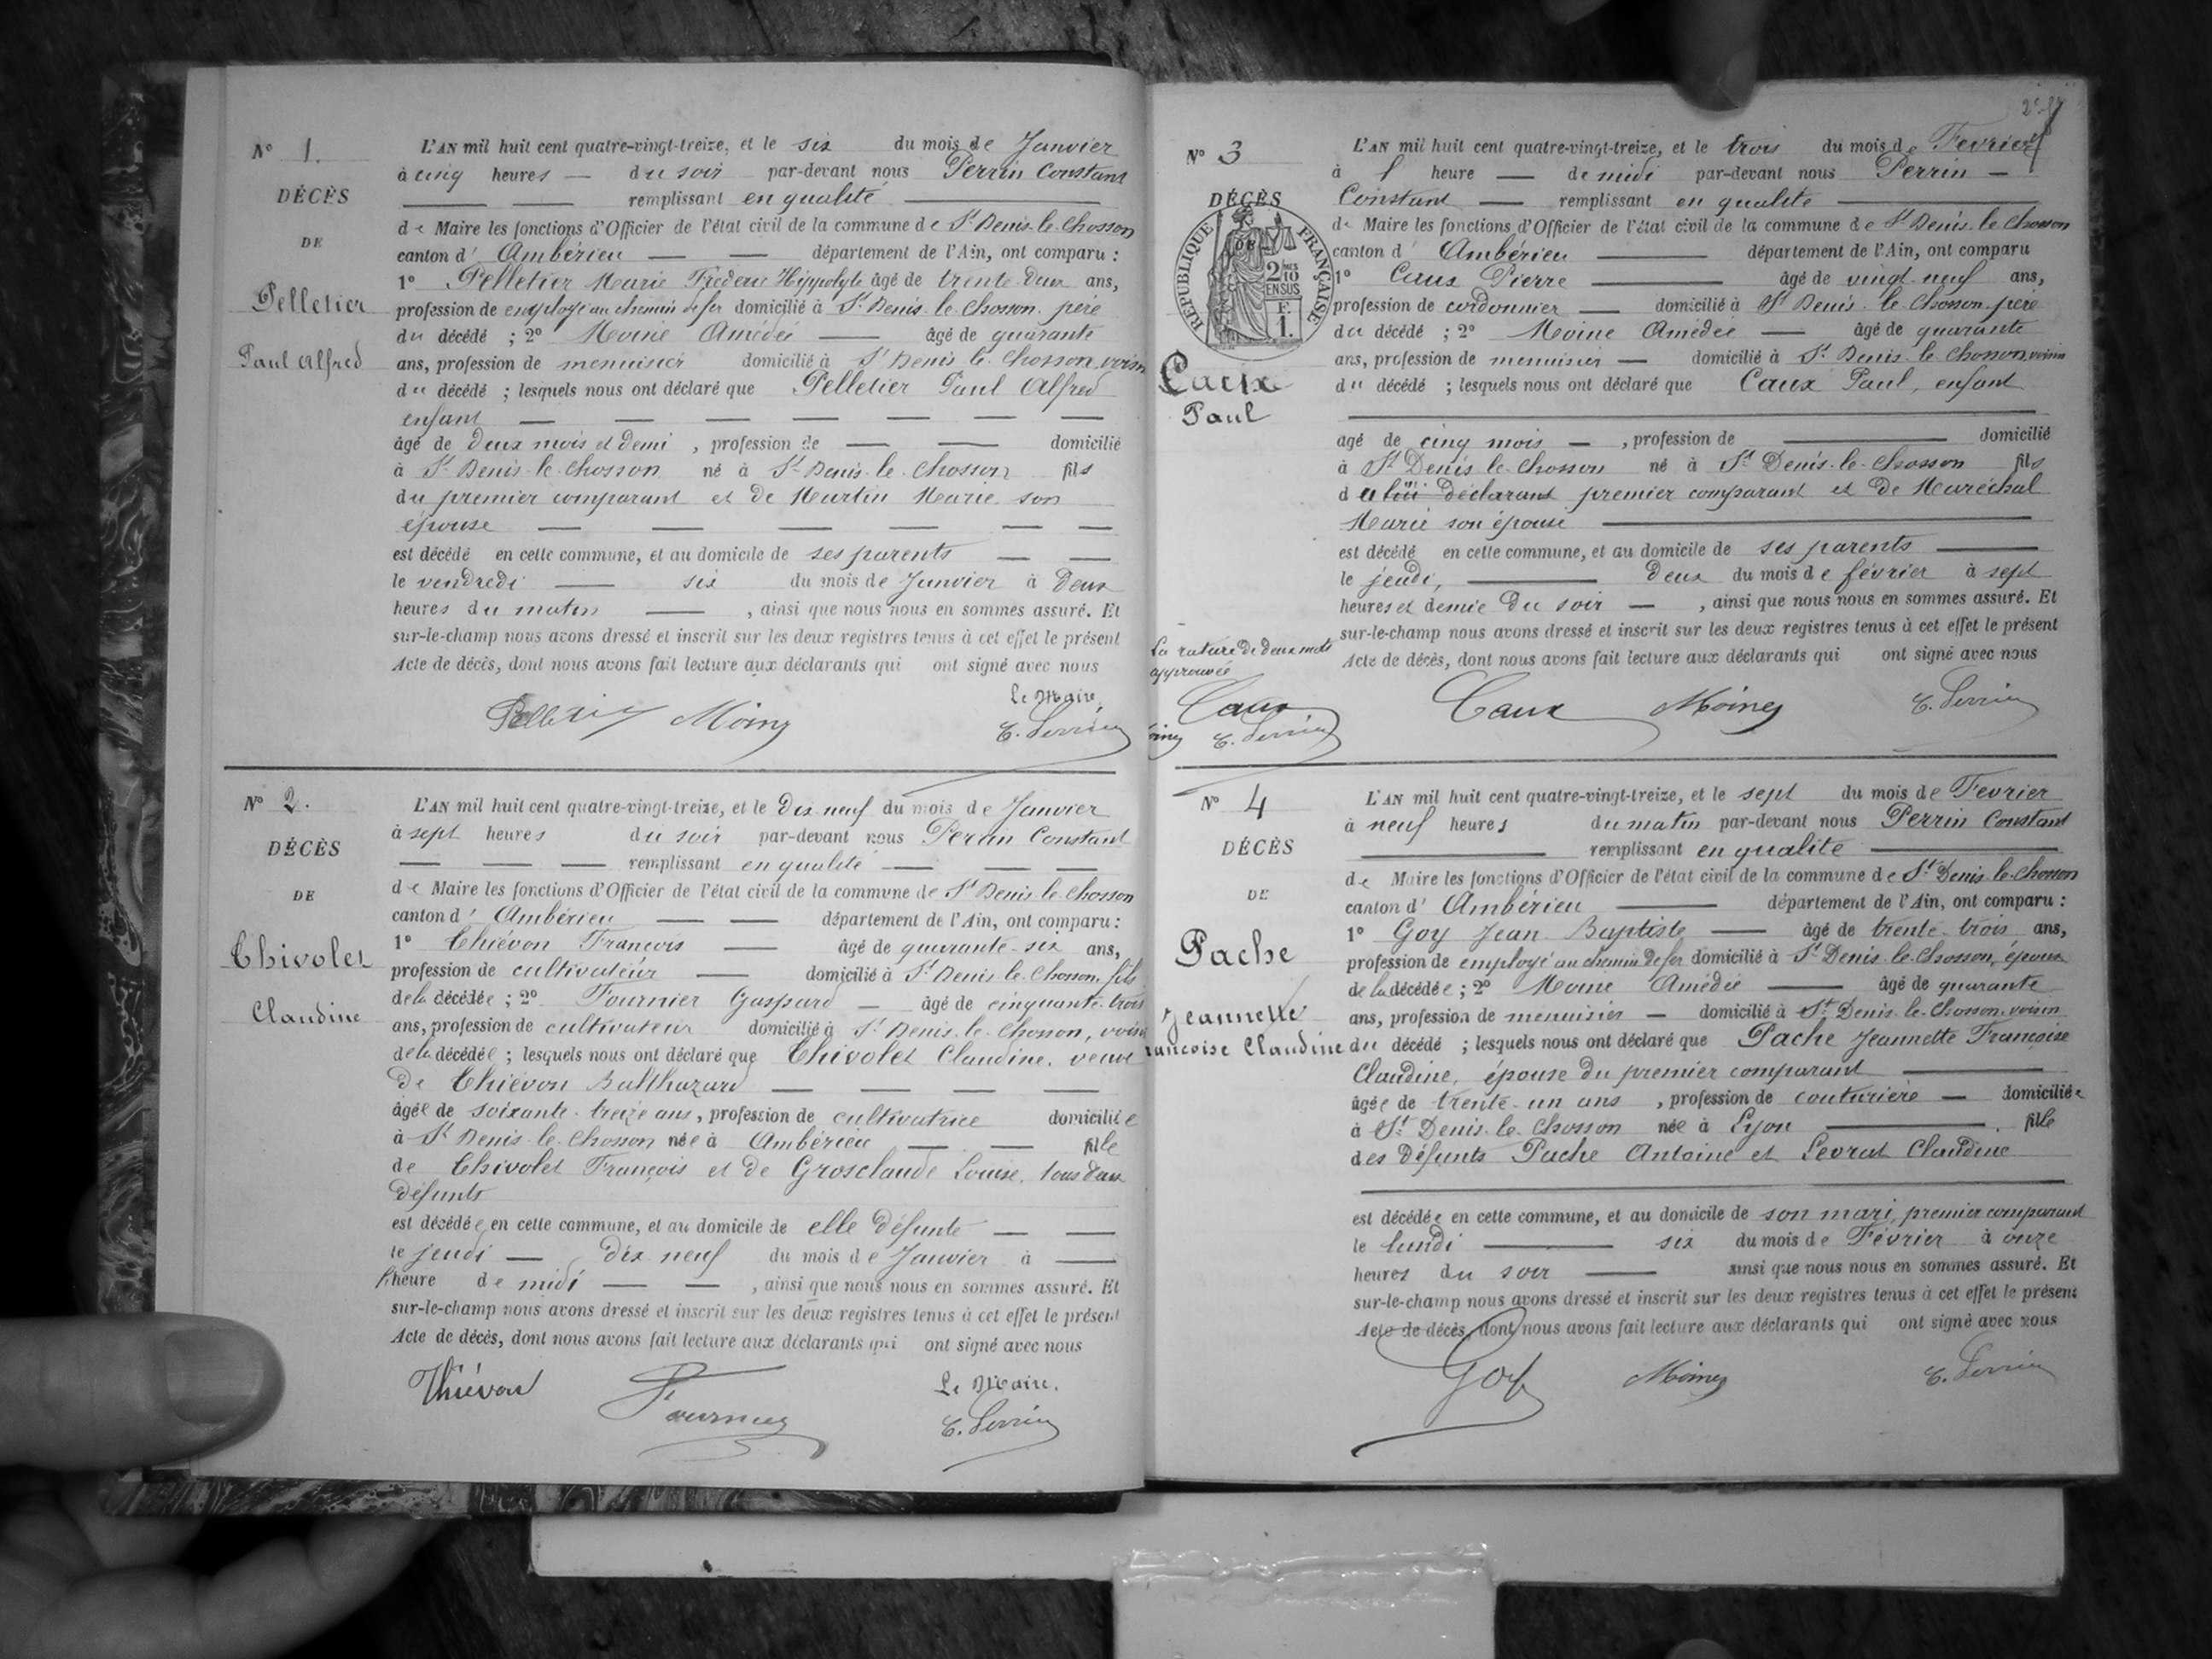 N° 1.
DÉCÈS
DE
Pelletier
Paul Alfred
L'AN mil huit cent quatre-vingt-treize, et le six du mois de Janvier
à cinq heures du soir par-devant nous Perrin Constant
remplissant en qualité
de Maire les fonctions d'Officier de l'état civil de la commune de St Denis-le-Chosson
canton d' Ambérieu département de l'Ain, ont comparu :
1° Pelletier Marie Frederic Hippolyte âgé de trente-deux ans,
profession de employé au chemin de fer domicilié à St Denis-le-Chosson, père
du décédé ; 2° Moine Amédée âgé de quarante
ans, profession de menuisier domicilié à St Denis-le-Chosson, voisin
du décédé ; lesquels nous ont déclaré que Pelletier Paul Alfred
enfant
âgé de deux mois et demi, profession de domicilié
à St Denis-le-Chosson né à St Denis-le-Chosson fils
du premier comparant et de Martin Marie son
épouse
est décédé en cette commune, et au domicile de ses parents
le vendredi six du mois de Janvier à deux
heures du matin, ainsi que nous nous en sommes assuré. Et
sur-le-champ nous avons dressé et inscrit sur les deux registres tenus à cet effet le présent
Acte de décès, dont nous avons fait lecture aux déclarants qui ont signé avec nous
Le Maire,
Pelletier Moine C. Perrin
N° 2.
DÉCÈS
DE
Chivolet
Claudine
L'AN mil huit cent quatre-vingt-treize, et le dix neuf du mois de Janvier
à sept heures du soir par-devant nous Perrin Constant
remplissant en qualité
de Maire les fonctions d'Officier de l'état civil de la commune de St Denis-le-Chosson
canton d' Ambérieu département de l'Ain, ont comparu :
1° Thiévon François âgé de quarante-six ans,
profession de cultivateur domicilié à St Denis-le-Chosson, fils
de la décédée ; 2° Fournier Gaspard âgé de cinquante-trois
ans, profession de cultivateur domicilié à St Denis-le-Chosson, voisin
de la décédée ; lesquels nous ont déclaré que Chivolet Claudine, veuve
de Thiévon Balthazard
âgée de soixante-treize ans, profession de cultivatrice domiciliée
à St Denis-le-Chosson née à Ambérieu fille
de Chivolet François et de Grosclaude Louise, tous deux
défunts
est décédée en cette commune, et au domicile de elle défunte
le jeudi dix neuf du mois de Janvier à
l'heure de midi, ainsi que nous nous en sommes assuré. Et
sur-le-champ nous avons dressé et inscrit sur les deux registres tenus à cet effet le présent
Acte de décès, dont nous avons fait lecture aux déclarants qui ont signé avec nous
Le Maire,
Thiévon Fournier C. Perrin
N° 3
DÉCÈS
DE
RÉPUBLIQUE FRANÇAISE
2/10 EN SUS
F.
1.
Caux
Paul
L'AN mil huit cent quatre-vingt-treize, et le trois du mois de Fevrier
à 1 heure de midi par-devant nous Perrin
Constant remplissant en qualité
de Maire les fonctions d'Officier de l'état civil de la commune de St Denis-le-Chosson
canton d' Ambérieu département de l'Ain, ont comparu
1° Caux Pierre âgé de vingt-neuf ans,
profession de cordonnier domicilié à St Denis-le-Chosson, père
du décédé ; 2° Moine Amédée âgé de quarante
ans, profession de menuisier domicilié à St Denis-le-Chosson, voisin
du décédé ; lesquels nous ont déclaré que Caux Paul, enfant
agé de cinq mois, profession de domicilié
à St Denis-le-Chosson né à St Denis-le-Chosson fils
du déclarant premier comparant et de Maréchal
Marie son épouse
est décédé en cette commune, et au domicile de ses parents
le jeudi, deux du mois de février à sept
heures et demie du soir, ainsi que nous nous en sommes assuré. Et
sur-le-champ nous avons dressé et inscrit sur les deux registres tenus à cet effet le présent
Acte de décès, dont nous avons fait lecture aux déclarants qui ont signé avec nous
La rature de deux mots
approuvée
Caux
C. Perrin
Caux Moine C. Perrin
N° 4
DÉCÈS
DE
Pache
Jeannette
Françoise Claudine
L'AN mil huit cent quatre-vingt-treize, et le sept du mois de Fevrier
à neuf heures du matin par-devant nous Perrin Constant
remplissant en qualité
de Maire les fonctions d'Officier de l'état civil de la commune de St Denis-le-Chosson
canton d' Ambérieu département de l'Ain, ont comparu :
1° Goy Jean Baptiste âgé de trente-trois ans,
profession de employé au chemin de fer domicilié à St Denis-le-Chosson, époux
de la décédée ; 2° Moine Amédée âgé de quarante
ans, profession de menuisier domicilié à St Denis-le-Chosson, voisin
du décédé ; lesquels nous ont déclaré que Pache Jeannette Françoise
Claudine, épouse du premier comparant
âgée de trente-un ans, profession de couturière domiciliée
à St Denis-le-Chosson née à Lyon fille
des défunts Pache Antoine et Levrat Claudine
est décédée en cette commune, et au domicile de son mari, premier comparant
le lundi six du mois de Février à onze
heures du soir ainsi que nous nous en sommes assuré. Et
sur-le-champ nous avons dressé et inscrit sur les deux registres tenus à cet effet le présent
Acte de décès, dont nous avons fait lecture aux déclarants qui ont signé avec nous
Goy Moine C. Perrin